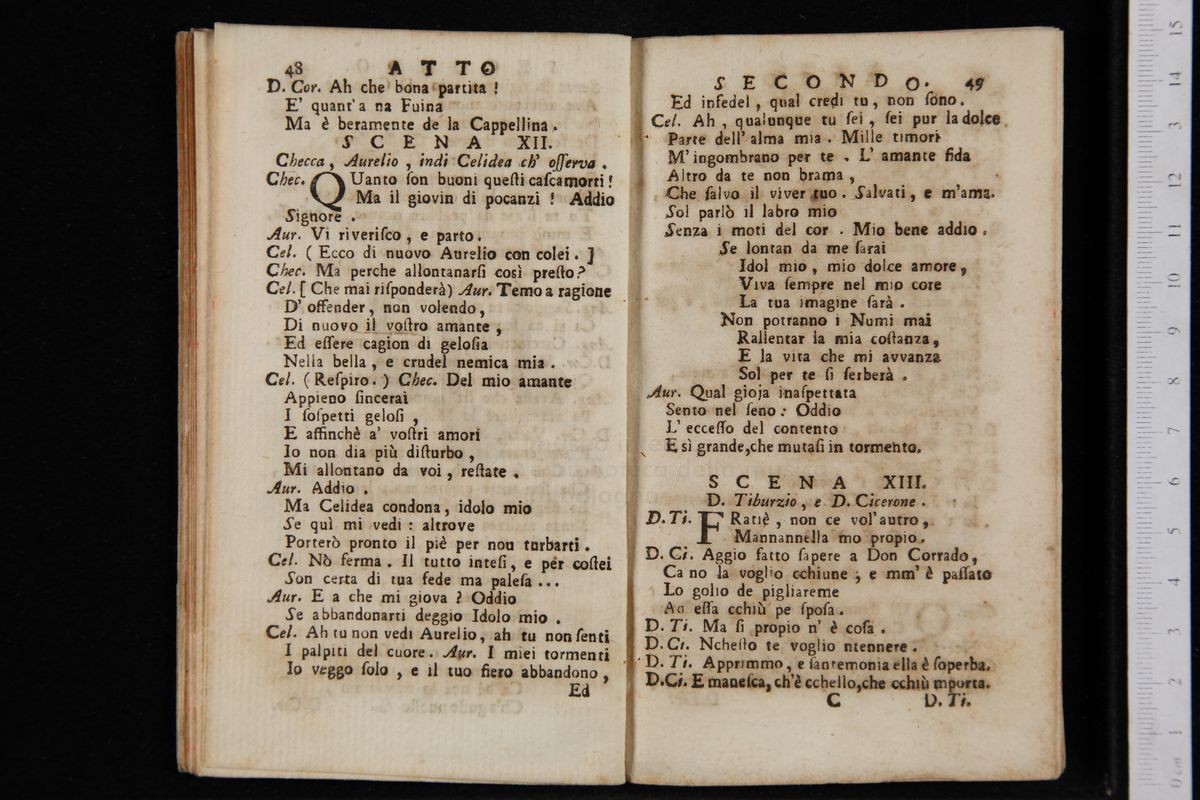 48 ATTO
D. Cor. Ah che bona partita !
E' quant'a na Fuina
Ma è beramente de la Cappellina .
SCENA XII.
Checca, Aurelio , indi Celidea ch' oſſerva .
Chec. QUanto ſon buoni queſti caſcamorti !
Ma il giovin di pocanzi ! Addio
Signore .
Aur. Vi riveriſco , e parto .
Cel. ( Ecco di nuovo Aurelio con colei . ]
Chec. Ma perche allontanarſi così preſto ?
Cel. [ Che mai riſponderà) Aur. Temo a ragione
D' offender , non volendo ,
Di nuovo il voſtro amante ,
Ed eſſere cagion di geloſia
Nella bella , e crudel nemica mia .
Cel. ( Reſpiro . ) Chec. Del mio amante
Appieno ſincerai
I ſoſpetti geloſi ,
E affinchè a' voſtri amori
Io non dia più diſturbo ,
Mi allontano da voi , reſtate .
Aur. Addio .
Ma Celidea condona , idolo mio
Se quì mi vedi : altrove
Porterò pronto il piè per nou turbarti .
Cel. Nò ferma . Il tutto inteſi , e per coſtei
Son certa di tua fede ma paleſa ...
Aur. E a che mi giova ? Oddio
Se abbandonarti deggio Idolo mio .
Cel. Ah tu non vedi Aurelio , ah tu non ſenti
I palpiti del cuore . Aur. I miei tormenti
Io veggo ſolo , e il tuo fiero abbandono ,
Ed
SECONDO. 49
Ed infedel , qual credi tu , non ſono .
Cel. Ah , qualunque tu ſei , ſei pur la dolce
Parte dell' alma mia . Mille timori
M' ingombrano per te . L' amante fida
Altro da te non brama ,
Che ſalvo il viver tuo . Salvati , e m'ama.
Sol parlò il labro mio
Senza i moti del cor . Mio bene addio .
Se lontan da me ſarai
Idol mio , mio dolce amore ,
Viva ſempre nel mio core
La tua imagine ſarà .
Non potranno i Numi mai
Rallentar la mia coſtanza ,
E la vita che mi avvanza
Sol per te ſi ſerberà .
Aur. Qual gioja inaſpettata
Sento nel ſeno : Oddio
L' ecceſſo del contento
E sì grande, che mutaſi in tormento.
SCENA XIII.
D. Tiburzio , e D. Cicerone .
D. Ti. FRatiè , non ce vol' autro ,
Mannannella mo propio .
D. Ci. Aggio fatto ſapere a Don Corrado ,
Ca no la voglio cchiune ; e mm' è paſſato
Lo golio de pigliareme
Ad eſſa cchiù pe ſpoſa .
D. Ti. Ma ſi propio n' è coſa .
D. Ci. Ncheſto te voglio ntennere .
D. Ti. Apprimmo , e ſantemonia ella è ſoperba.
D. Ci. E maneſca, ch'è cchello, che cchiù mporta.
C D. Ti.